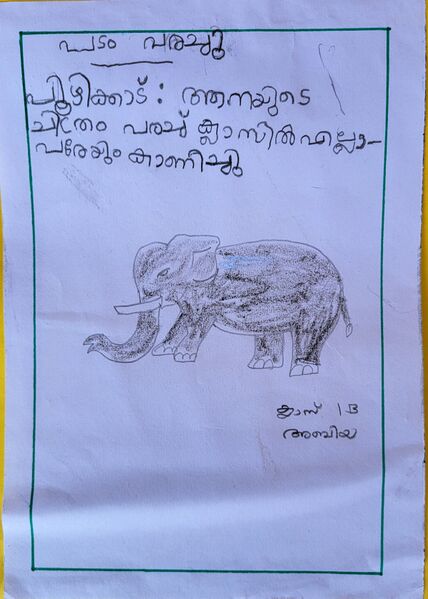 പടം വരച്ചു
പൂഴിക്കാട് : ആനയുടെ
ചിത്രം വരച്ച് ക്ലാസിൽ എല്ലാ-
വരേയും കാണിച്ചു
ക്ലാസ് 1 B
അബിയ